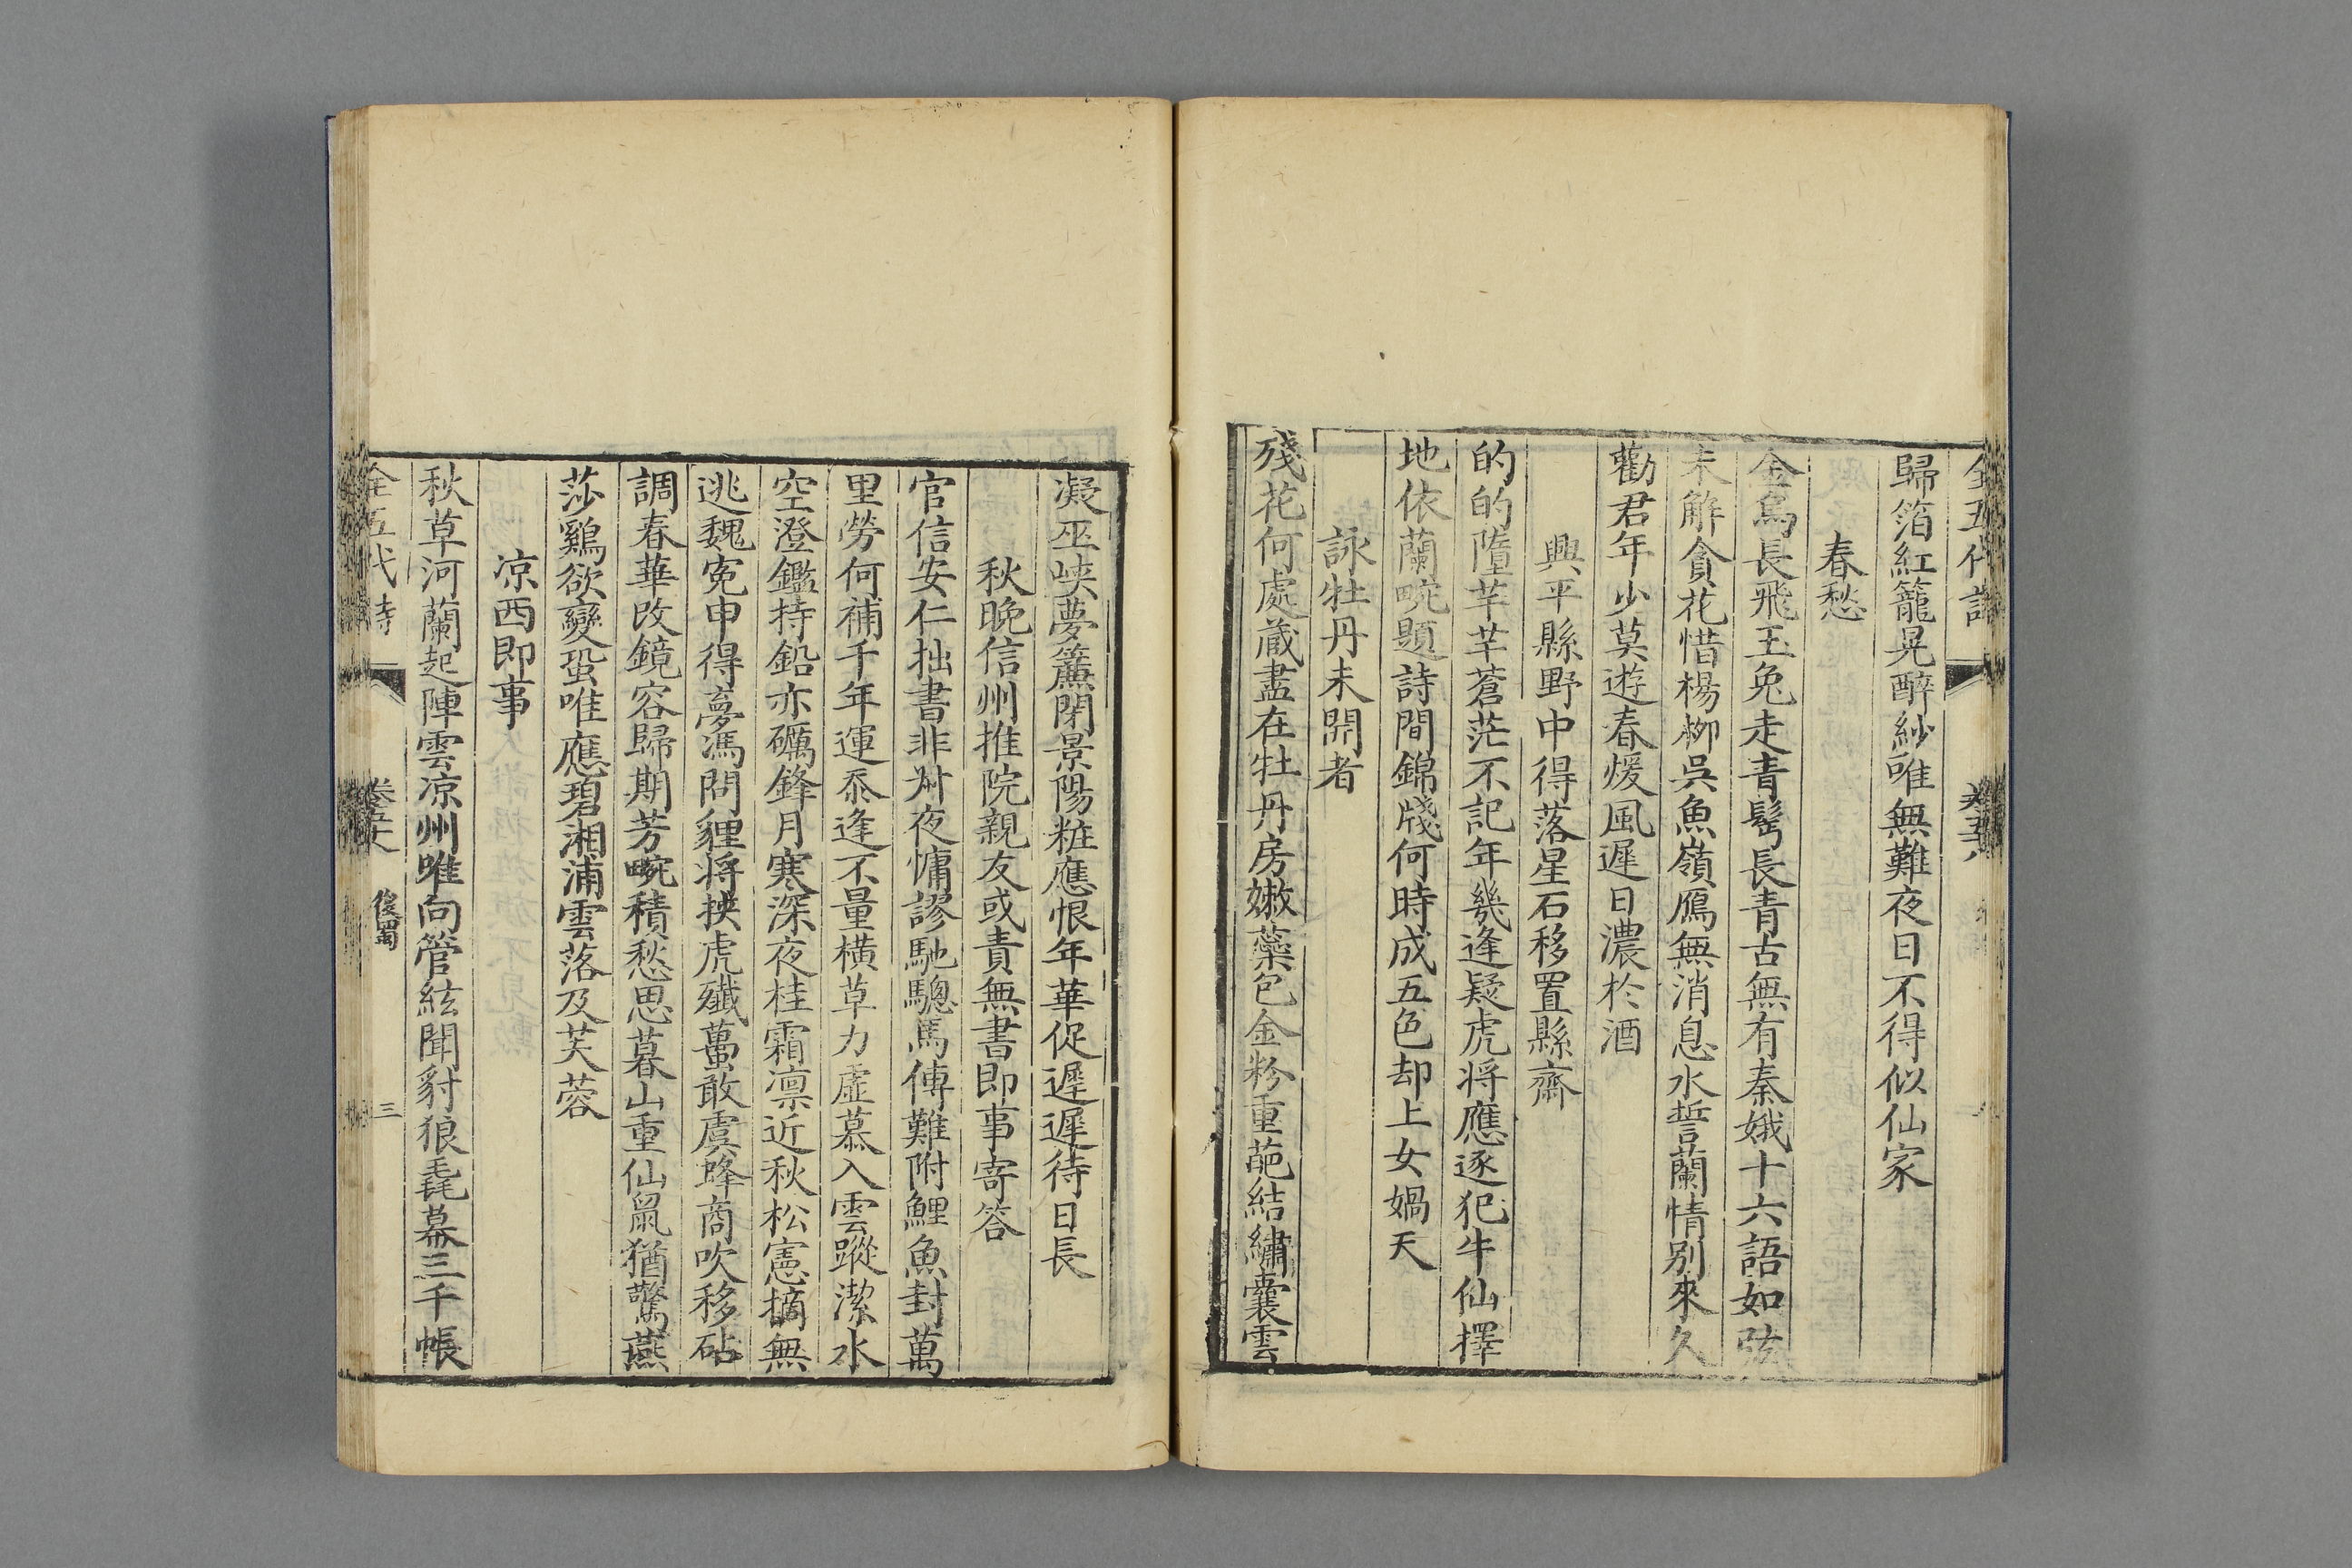 全五代詩
歸箔紅籠晃醉紗唯無難夜日不得似仙家
春愁
金烏長飛玉兔走青髩長青古無有秦娥十六語如弦
未解貪花惜楊柳吳魚嶺鴈無消息水誓蘭情别來久
勸君年少莫遊春煖風遲日濃於酒
興平縣野中得落星石移置縣齋
的的墮芊芊蒼茫不記年幾逢疑虎將應逐犯牛仙擇
地依蘭畹題詩間錦牋何時成五色却上女媧天
詠牡丹未開者
殘花何處藏盡在牡丹房嫩蘂包金粉重葩結繡囊雲
凝巫峽夢簾閉景陽粧應恨年華促遲遲待日長
秋晚信州推院親友或責無書即事寄答
官信安仁拙書非叔夜慵謬馳驄馬傳難附鯉魚封萬
里勞何補千年運忝逢不量橫草力虛慕入雲蹤潔水
空澄鑑持鉛亦礪鋒月寒深夜桂霜凛近秋松憲摘無
逃魏寃申得夢馮問貍將挾虎殲蠆敢虞蜂商吹移砧
調春華改鏡容歸期芳畹積愁思暮山重仙鼠猶驚燕
莎鷄欲變蛩唯應碧湘浦雲落及芙蓉
凉西即事
秋草河蘭起陣雲凉州唯向管絃聞豺狼毳幕三千帳
全五代詩
卷五十八
後蜀
三